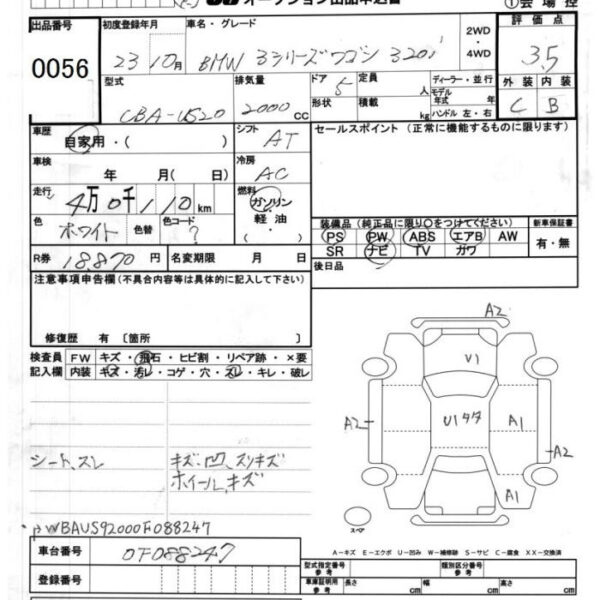 オークション出品申込書
①会場控
出品番号 初度登録年月 車名・グレード 2WD・4WD 評価点
0056 23 10月 BMW 3シリーズワゴン 320i 3.5
型式 排気量 ドア形状 5 定員 人 積載 kg ディーラー・並行 モデル年式 年 ハンドル 左・右 外装 内装
CBA-US20 2000 cc C B
車歴 自家用・( ) シフト AT セールスポイント(正常に機能するものに限ります)
車検 年 月(日) 冷房 AC
走行 4万0千110 km 燃料 ガソリン 軽油・
色 ホワイト 色替 色コード ?
装備品(純正品に限り○をつけてください) 新車保証書
PS PW ABS エアB AW 有・無
SR ナビ TV ガワ
R券 18,870円 名変期限 月 日 後日品
注意事項申告欄(不具合内容等は具体的に記入して下さい)
修復歴 有〔箇所 〕
検査員 FW キズ・飛石・ヒビ割・リペア跡・×要
記入欄 内装 キズ・汚レ・コゲ・穴・スレ・キレ・破レ
A2
V1
A2 U1タタ A1 A2
A1
シート、スレ キズ・凹、スリキズ
ホイール、キズ
WBAUS92000F088247
スペア
車台番号 0F088247
A-キズ E-エクボ U-凹み W-補修跡 S-サビ C-腐食 XX-交換済
登録番号
型式指定番号 参考 類別区分番号 参考
車庫証明用 参考 長さ cm 幅 cm 高さ cm